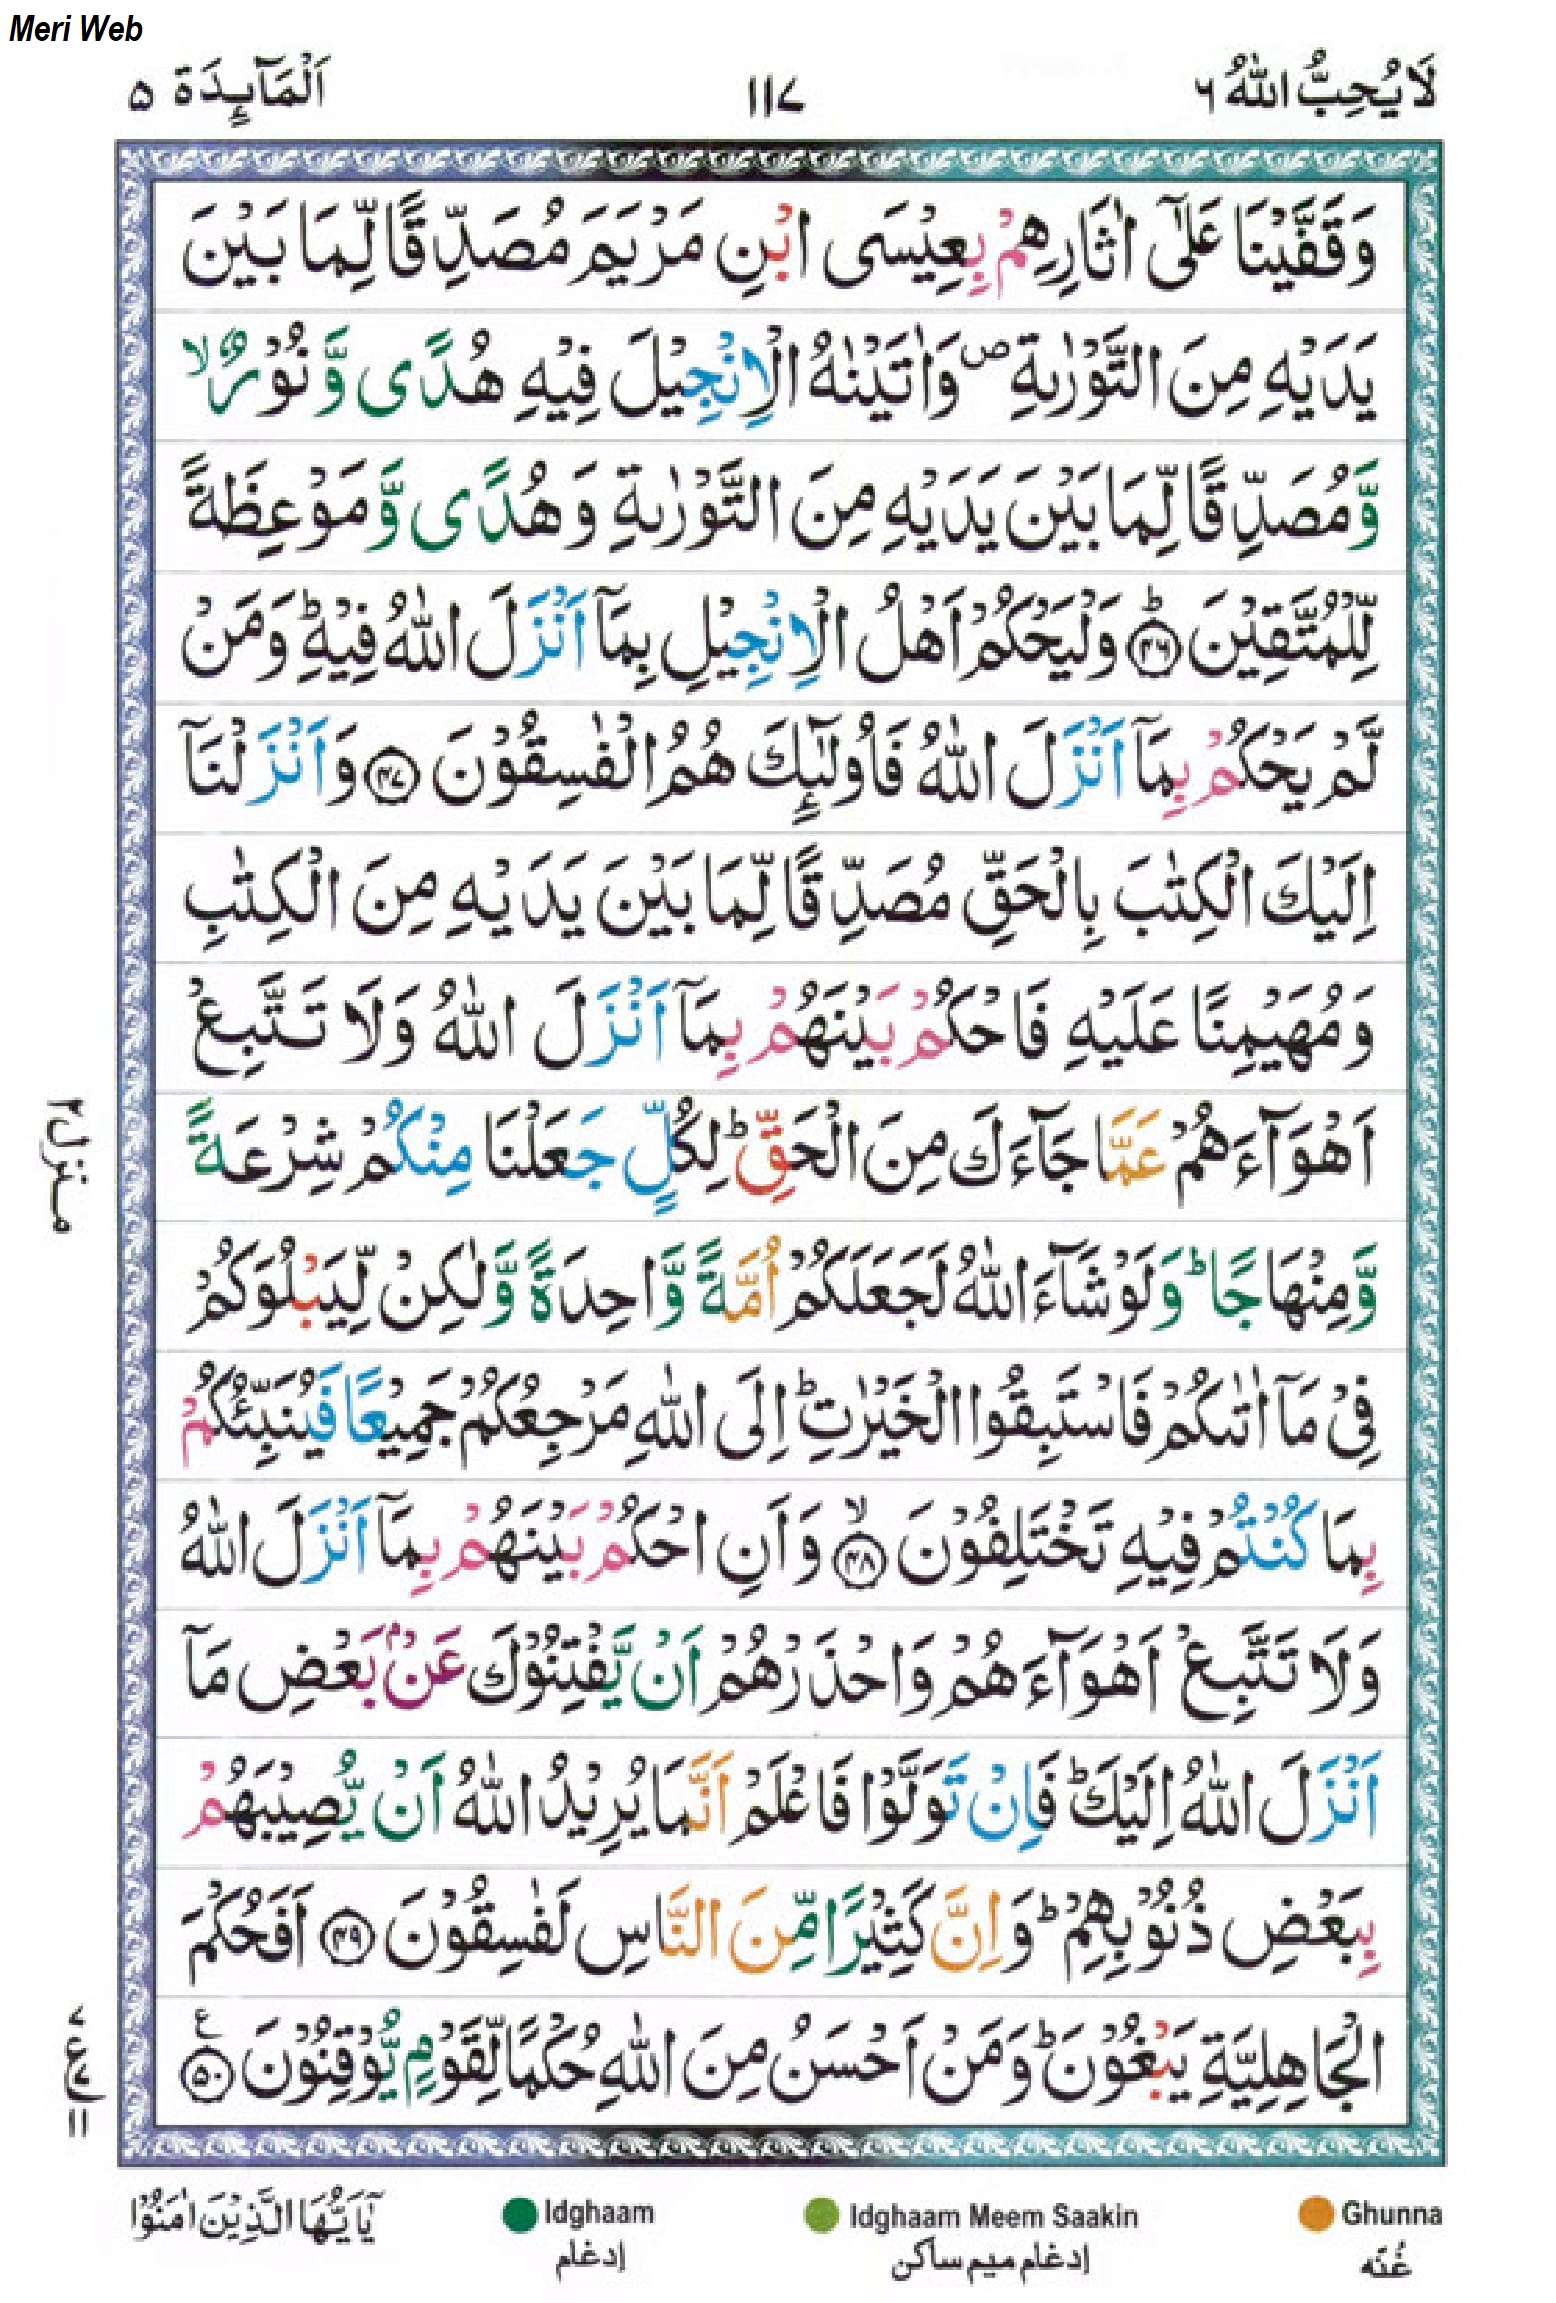 Meri Web
لَا يُحِبُّ اللّٰهُ ٦
١١٧
اَلْمَآئِدَة ٥
وَقَفَّيْنَا عَلٰٓى اٰثَارِهِمْ بِعِيْسَى ابْنِ مَرْيَمَ مُصَدِّقًا لِّمَا بَيْنَ
يَدَيْهِ مِنَ التَّوْرٰىةِ ۪ وَاٰتَيْنٰهُ الْاِنْجِيْلَ فِيْهِ هُدًى وَّنُوْرٌ ۙ
وَّمُصَدِّقًا لِّمَا بَيْنَ يَدَيْهِ مِنَ التَّوْرٰىةِ وَهُدًى وَّمَوْعِظَةً
لِّلْمُتَّقِيْنَ ؕ ﴿۴۶﴾ وَلْيَحْكُمْ اَهْلُ الْاِنْجِيْلِ بِمَاۤ اَنْزَلَ اللّٰهُ فِيْهِ ؕ وَمَنْ
لَّمْ يَحْكُمْ بِمَاۤ اَنْزَلَ اللّٰهُ فَاُولٰٓئِكَ هُمُ الْفٰسِقُوْنَ ﴿۴۷﴾ وَاَنْزَلْنَاۤ
اِلَيْكَ الْكِتٰبَ بِالْحَقِّ مُصَدِّقًا لِّمَا بَيْنَ يَدَيْهِ مِنَ الْكِتٰبِ
وَمُهَيْمِنًا عَلَيْهِ فَاحْكُمْ بَيْنَهُمْ بِمَاۤ اَنْزَلَ اللّٰهُ وَلَا تَتَّبِعْ
اَهْوَآءَهُمْ عَمَّا جَآءَكَ مِنَ الْحَقِّ ؕ لِكُلٍّ جَعَلْنَا مِنْكُمْ شِرْعَةً
وَّمِنْهَاجًا ؕ وَلَوْ شَآءَ اللّٰهُ لَجَعَلَكُمْ اُمَّةً وَّاحِدَةً وَّلٰكِنْ لِّيَبْلُوَكُمْ
فِيْ مَاۤ اٰتٰىكُمْ فَاسْتَبِقُوا الْخَيْرٰتِ ؕ اِلَى اللّٰهِ مَرْجِعُكُمْ جَمِيْعًا فَيُنَبِّئُكُمْ
بِمَا كُنْتُمْ فِيْهِ تَخْتَلِفُوْنَ ۙ ﴿۴۸﴾ وَاَنِ احْكُمْ بَيْنَهُمْ بِمَاۤ اَنْزَلَ اللّٰهُ
وَلَا تَتَّبِعْ اَهْوَآءَهُمْ وَاحْذَرْهُمْ اَنْ يَّفْتِنُوْكَ عَنْۢ بَعْضِ مَاۤ
اَنْزَلَ اللّٰهُ اِلَيْكَ ؕ فَاِنْ تَوَلَّوْا فَاعْلَمْ اَنَّمَا يُرِيْدُ اللّٰهُ اَنْ يُّصِيْبَهُمْ
بِبَعْضِ ذُنُوْبِهِمْ ؕ وَاِنَّ كَثِيْرًا مِّنَ النَّاسِ لَفٰسِقُوْنَ ﴿۴۹﴾ اَفَحُكْمَ
الْجَاهِلِيَّةِ يَبْغُوْنَ ؕ وَمَنْ اَحْسَنُ مِنَ اللّٰهِ حُكْمًا لِّقَوْمٍ يُّوْقِنُوْنَ ﴿۵۰﴾ ع
منزل ٢
٧
ع
٧
١١
Ghunna
غُنّه
Idghaam Meem Saakin
إدغام ميم ساكن
Idghaam
إدغام
يٰۤاَيُّهَا الَّذِيْنَ اٰمَنُوْا